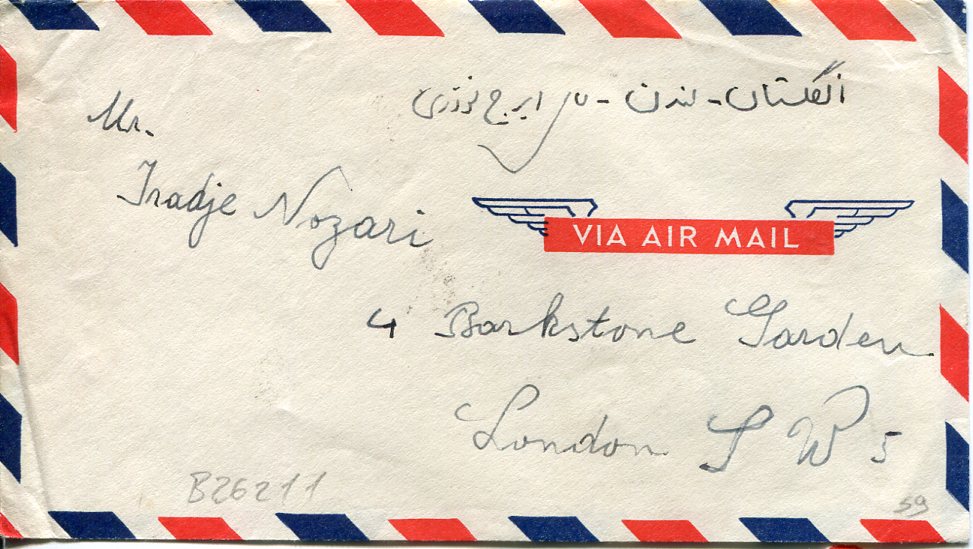 انگلستان - لندن - ایرج نوذری
Mr.
Iradje Nozari
VIA AIR MAIL
4 Barkstone Garden
London S W 5
B26211
59